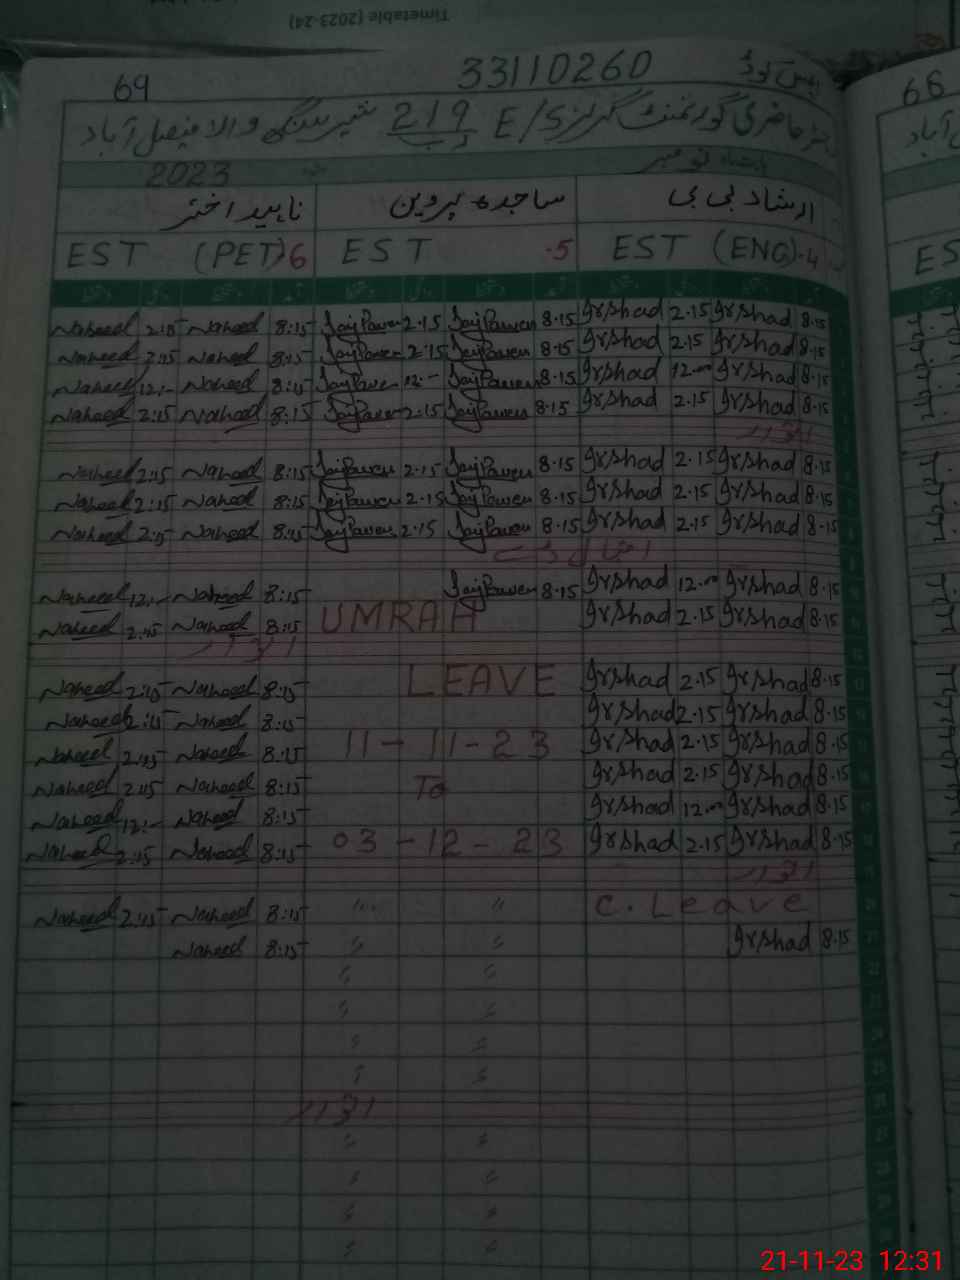 Timetable (2023-24)
69
33110260
ایمس کوڈ
68
رجسٹر حاضری گورنمنٹ گرلز E/S 219 ر ب شیر سنگھ والا فیصل آباد
بابت ماہ نومبر 2023
ارشاد بی بی ساجدہ پروین ناہید اختر
EST (ENG)-4 EST -5 EST (PET)-6
Naheed 2:15 Naheed 8:15 SajParveen 2.15 SajParveen 8.15 Irshad 2.15 Irshad 8.15
Naheed 2:15 Naheed 8:15 SajParveen 2.15 SajParveen 8.15 Irshad 2.15 Irshad 8.15
Naheed 12:- Naheed 8:15 SajParveen 12:- SajParveen 8.15 Irshad 12.00 Irshad 8.15
Naheed 2:15 Naheed 8:15 SajParveen 2.15 SajParveen 8.15 Irshad 2.15 Irshad 8.15
اتوار
Naheed 2:15 Naheed 8:15 SajParveen 2.15 SajParveen 8.15 Irshad 2.15 Irshad 8.15
Naheed 2:15 Naheed 8:15 SajParveen 2.15 SajParveen 8.15 Irshad 2.15 Irshad 8.15
Naheed 2:15 Naheed 8:15 SajParveen 2.15 SajParveen 8.15 Irshad 2.15 Irshad 8.15
Naheed 12:- Naheed 8:15 SajParveen 8.15 Irshad 12.00 Irshad 8.15
Naheed 2:15 Naheed 8:15 UMRAH Irshad 2.15 Irshad 8.15
اتوار
Naheed 2:15 Naheed 8:15 LEAVE Irshad 2.15 Irshad 8.15
Naheed 2:15 Naheed 8:15 Irshad 2.15 Irshad 8.15
Naheed 2:15 Naheed 8:15 11-11-23 Irshad 2.15 Irshad 8.15
Naheed 2:15 Naheed 8:15 To Irshad 2.15 Irshad 8.15
Naheed 12:- Naheed 8:15 Irshad 12.00 Irshad 8.15
Naheed 2:15 Naheed 8:15 03-12-23 Irshad 2.15 Irshad 8.15
اتوار
Naheed 2:15 Naheed 8:15 " " C. Leave
Naheed 8:15 " " Irshad 8.15
" "
" "
" "
" "
اتوار
" "
" "
" "
" "
21-11-23 12:31